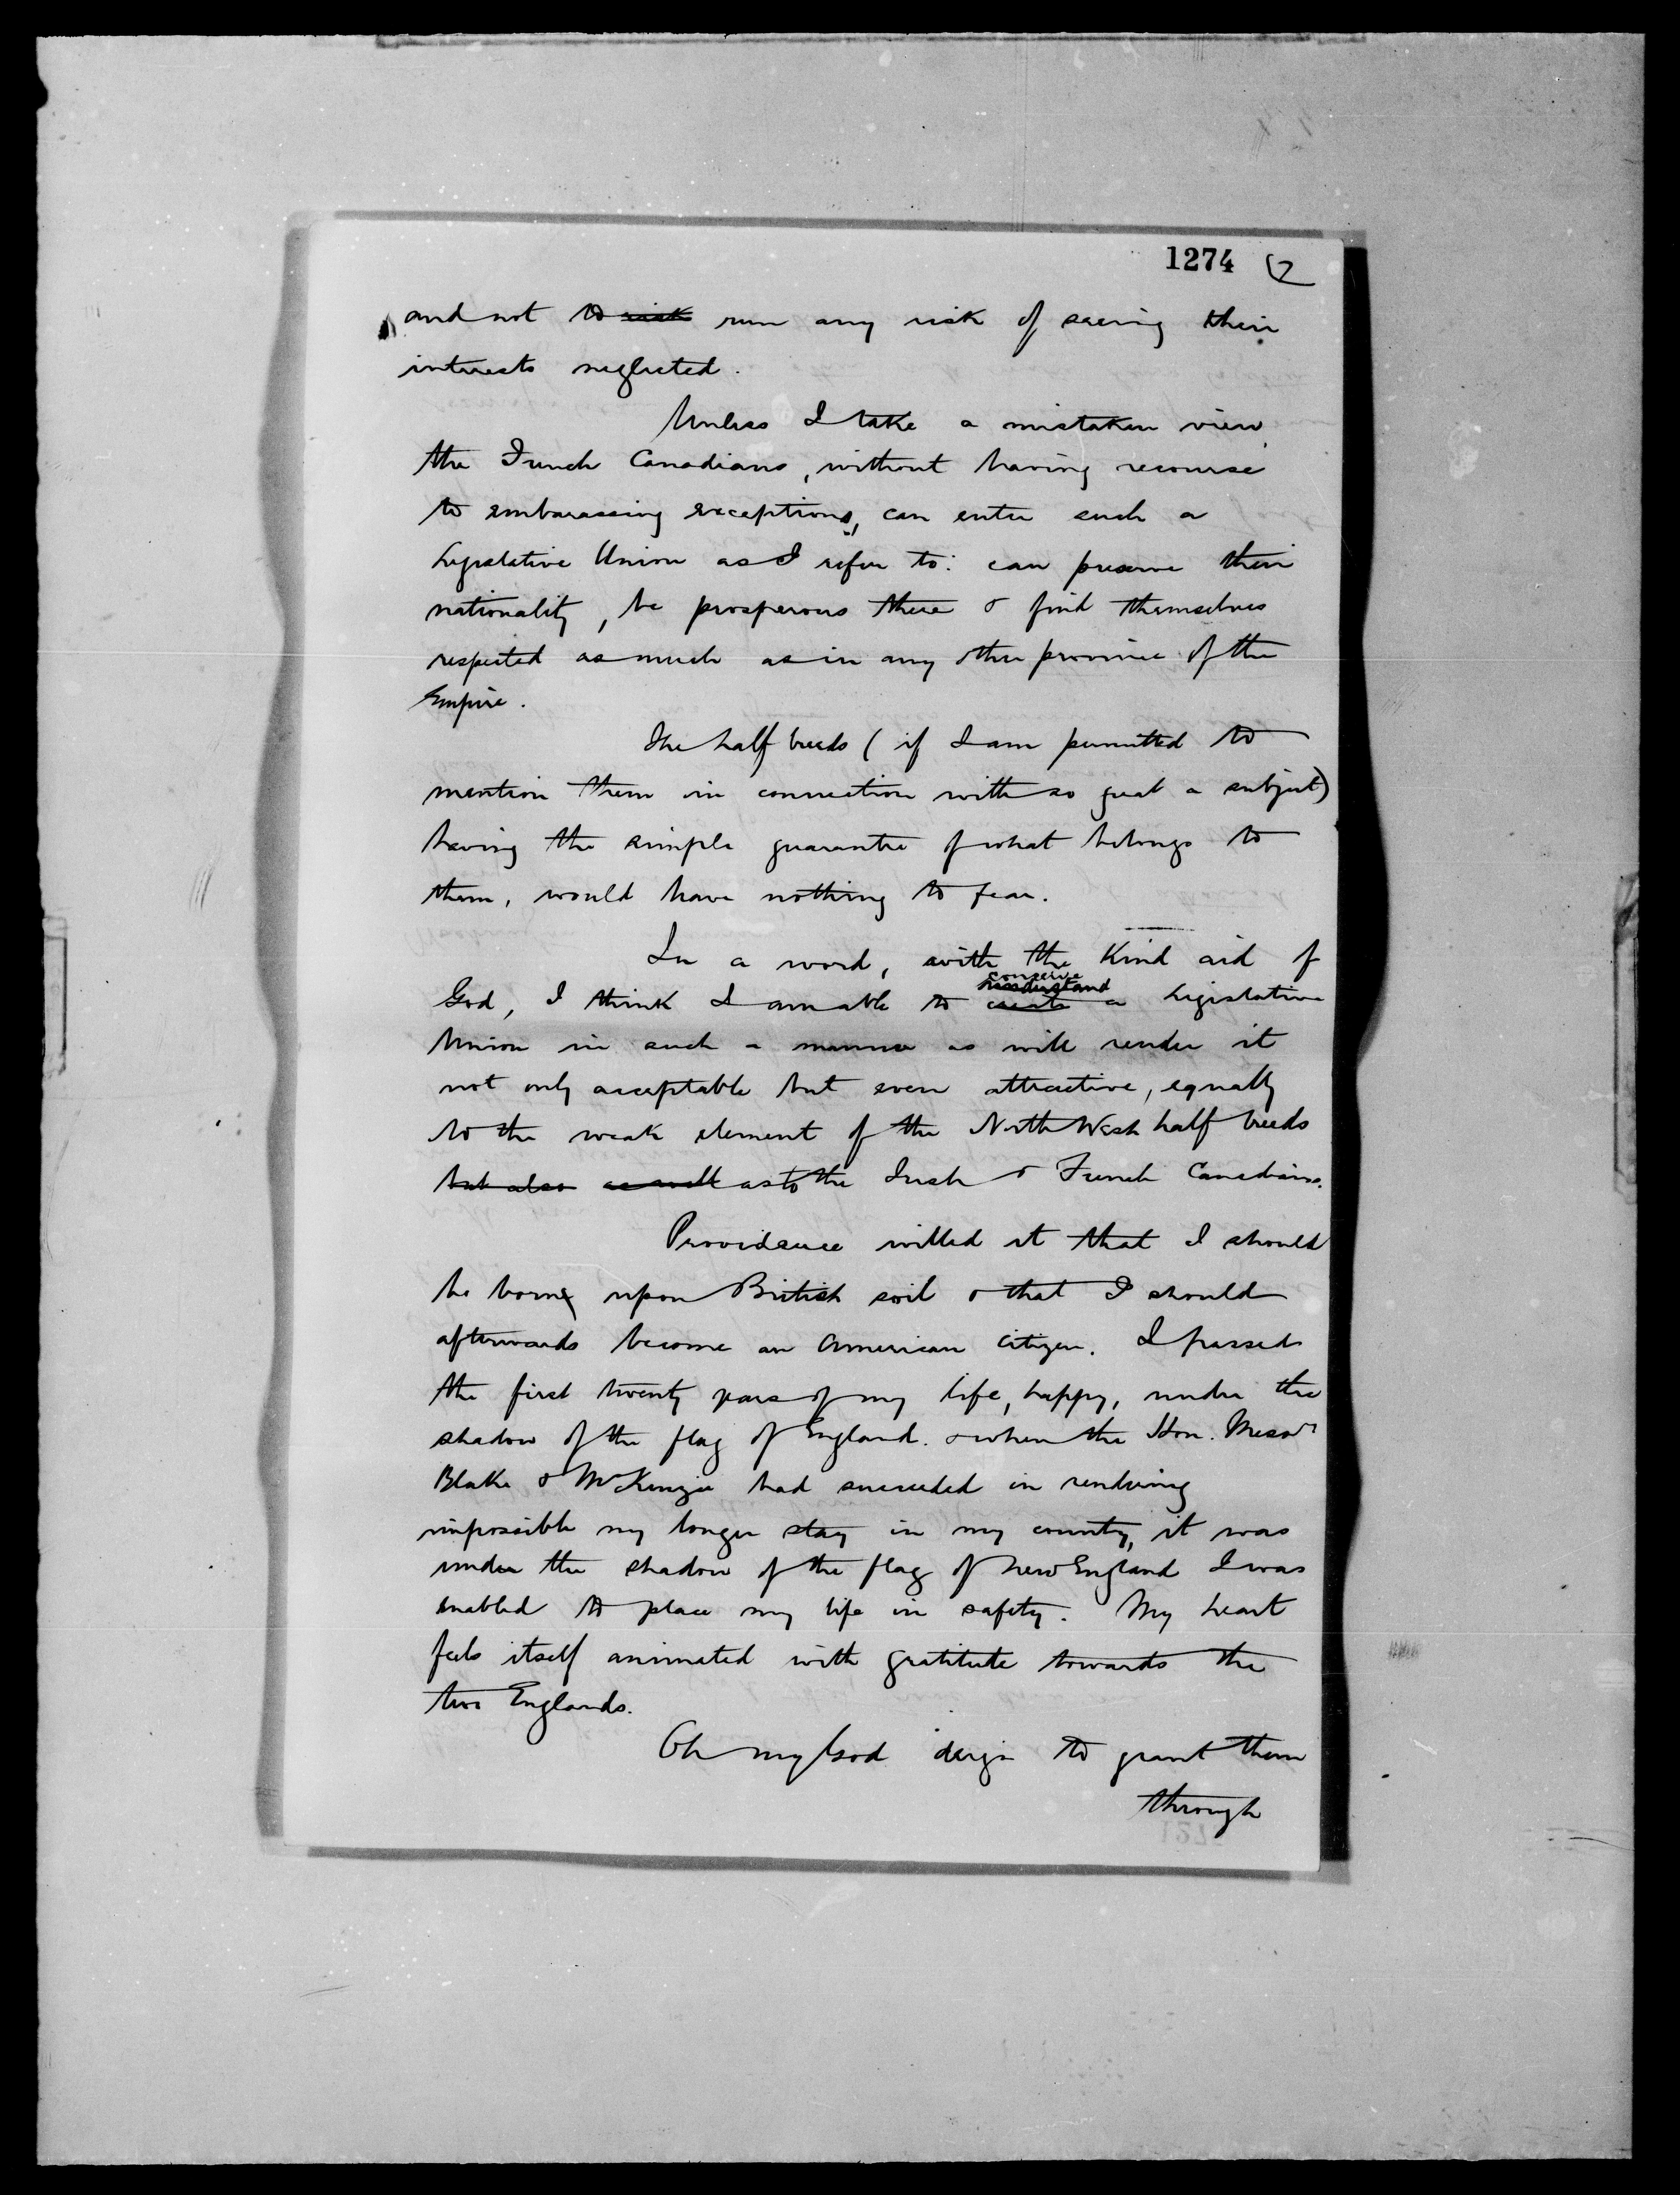 1274 (2
and not to risk run any risk of seeing their
interests neglected.
Unless I take a mistaken view,
the French Canadians, without having recourse
to embarassing exceptions, can enter such a
Legislative Union as I refer to: can preserve their
nationality, be prosperous there & find themselves
respected as much as in any other province of the
Empire.
The half breeds (if I am permitted to
mention them in connection with so great a subject)
having the simple guarantee of what belongs to
them, would have nothing to fear.
In a word, with the Kind aid of
conceive
understand
God, I think I am able to create a Legislative
Union in such a manner as will render it
not only acceptable but even attractive, equally
to the weak element of the North West half breeds
but also as well as to the Irish & French Canadians.
Providence willed it that I should
be born upon British soil & that I should
afterwards become an American citizen. I passed
the first twenty years of my life, happy, under the
shadow of the flag of England. & when the Hon. Messrs
Blake & McKenzie had succeeded in rendering
impossible my longer stay in my country, it was
under the shadow of the flag of New England I was
enabled to place my life in safety. My heart
feels itself animated with gratitute towards the
two Englands.
Oh my God deign to grant them
through